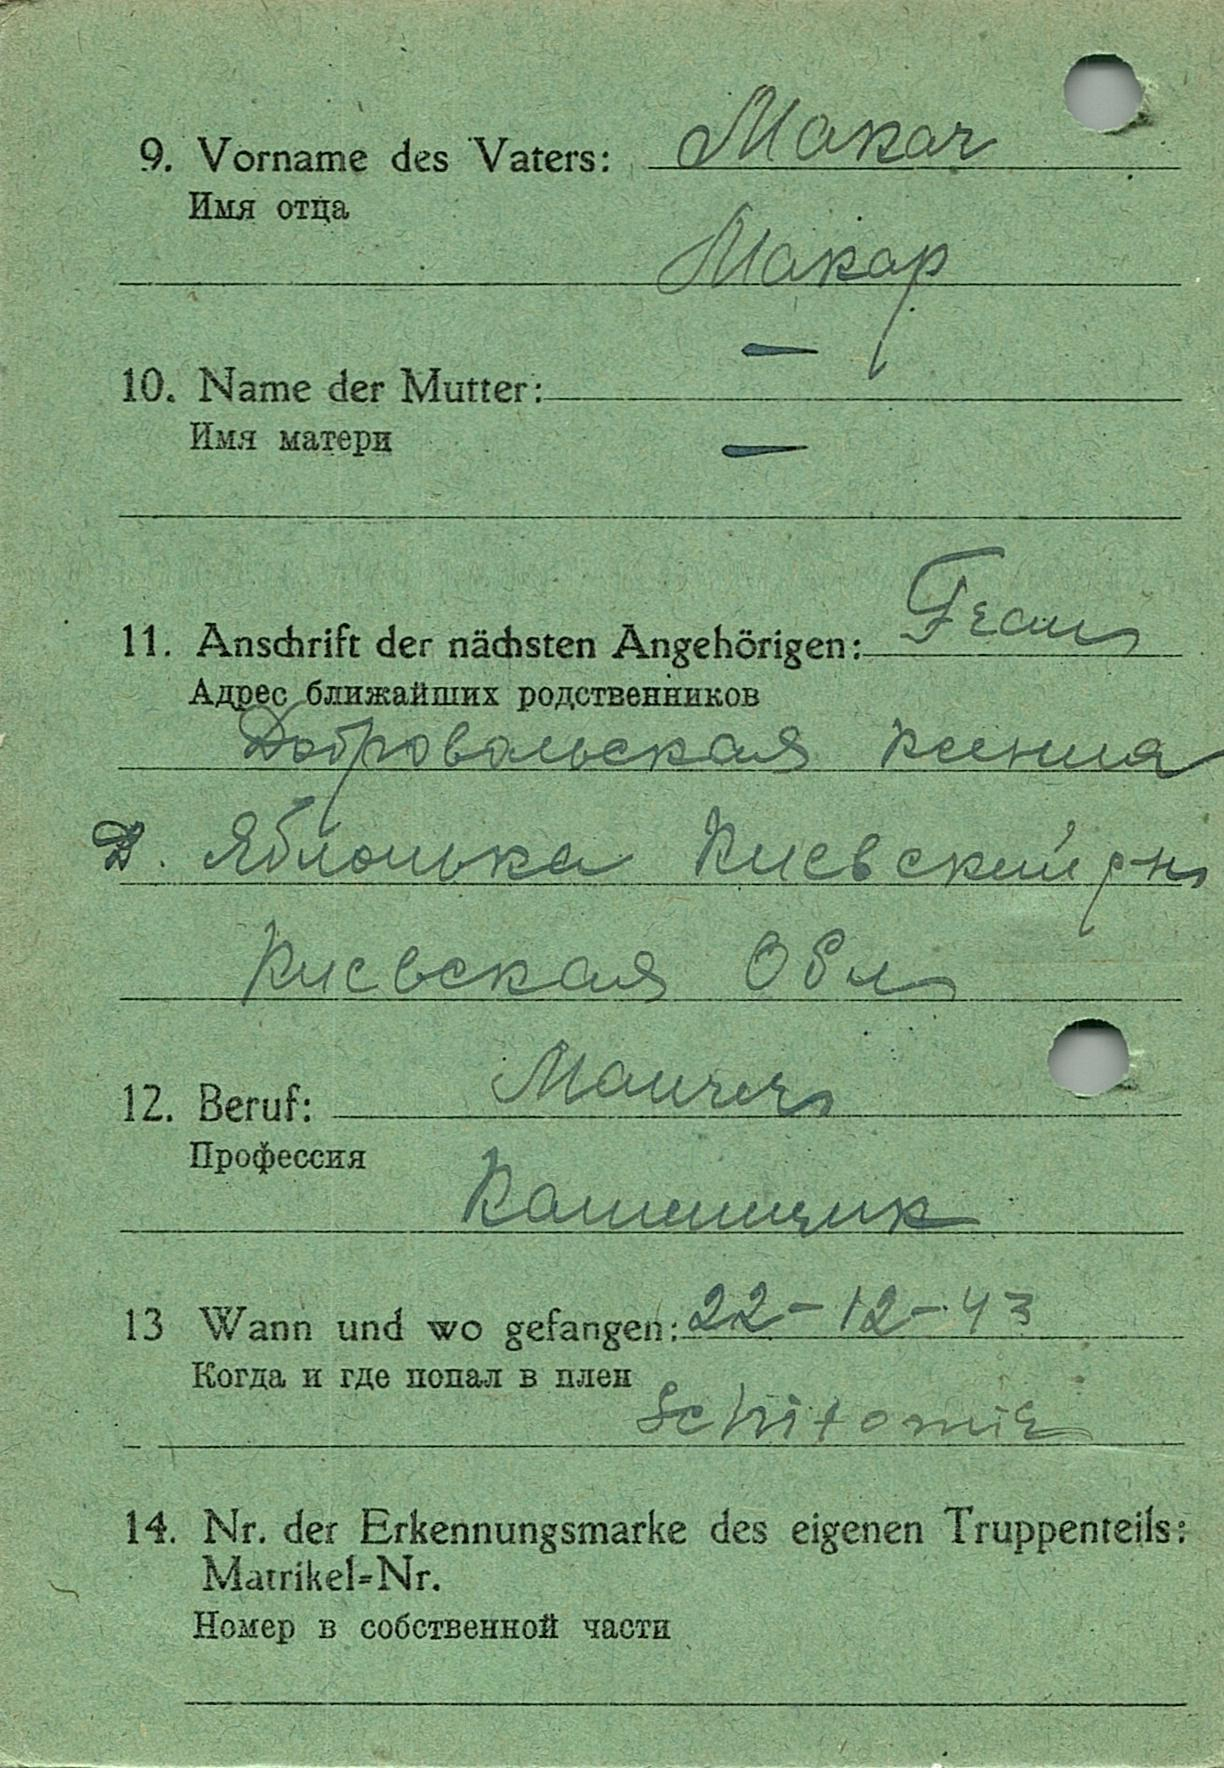 9. Vorname des Vaters: Makar
Имя отца
Макар
10. Name der Mutter: —
Имя матери
—
11. Anschrift der nächsten Angehörigen: Frau
Адрес ближайших родственников
Добровольская Ксения
Д. Яблонька Киевский р-н
Киевская Обл
12. Beruf: Maurer
Профессия
Каменщик
13 Wann und wo gefangen: 22-12-43
Когда и где попал в плен
Schitomir
14. Nr. der Erkennungsmarke des eigenen Truppenteils:
Matrikel=Nr.
Номер в собственной части